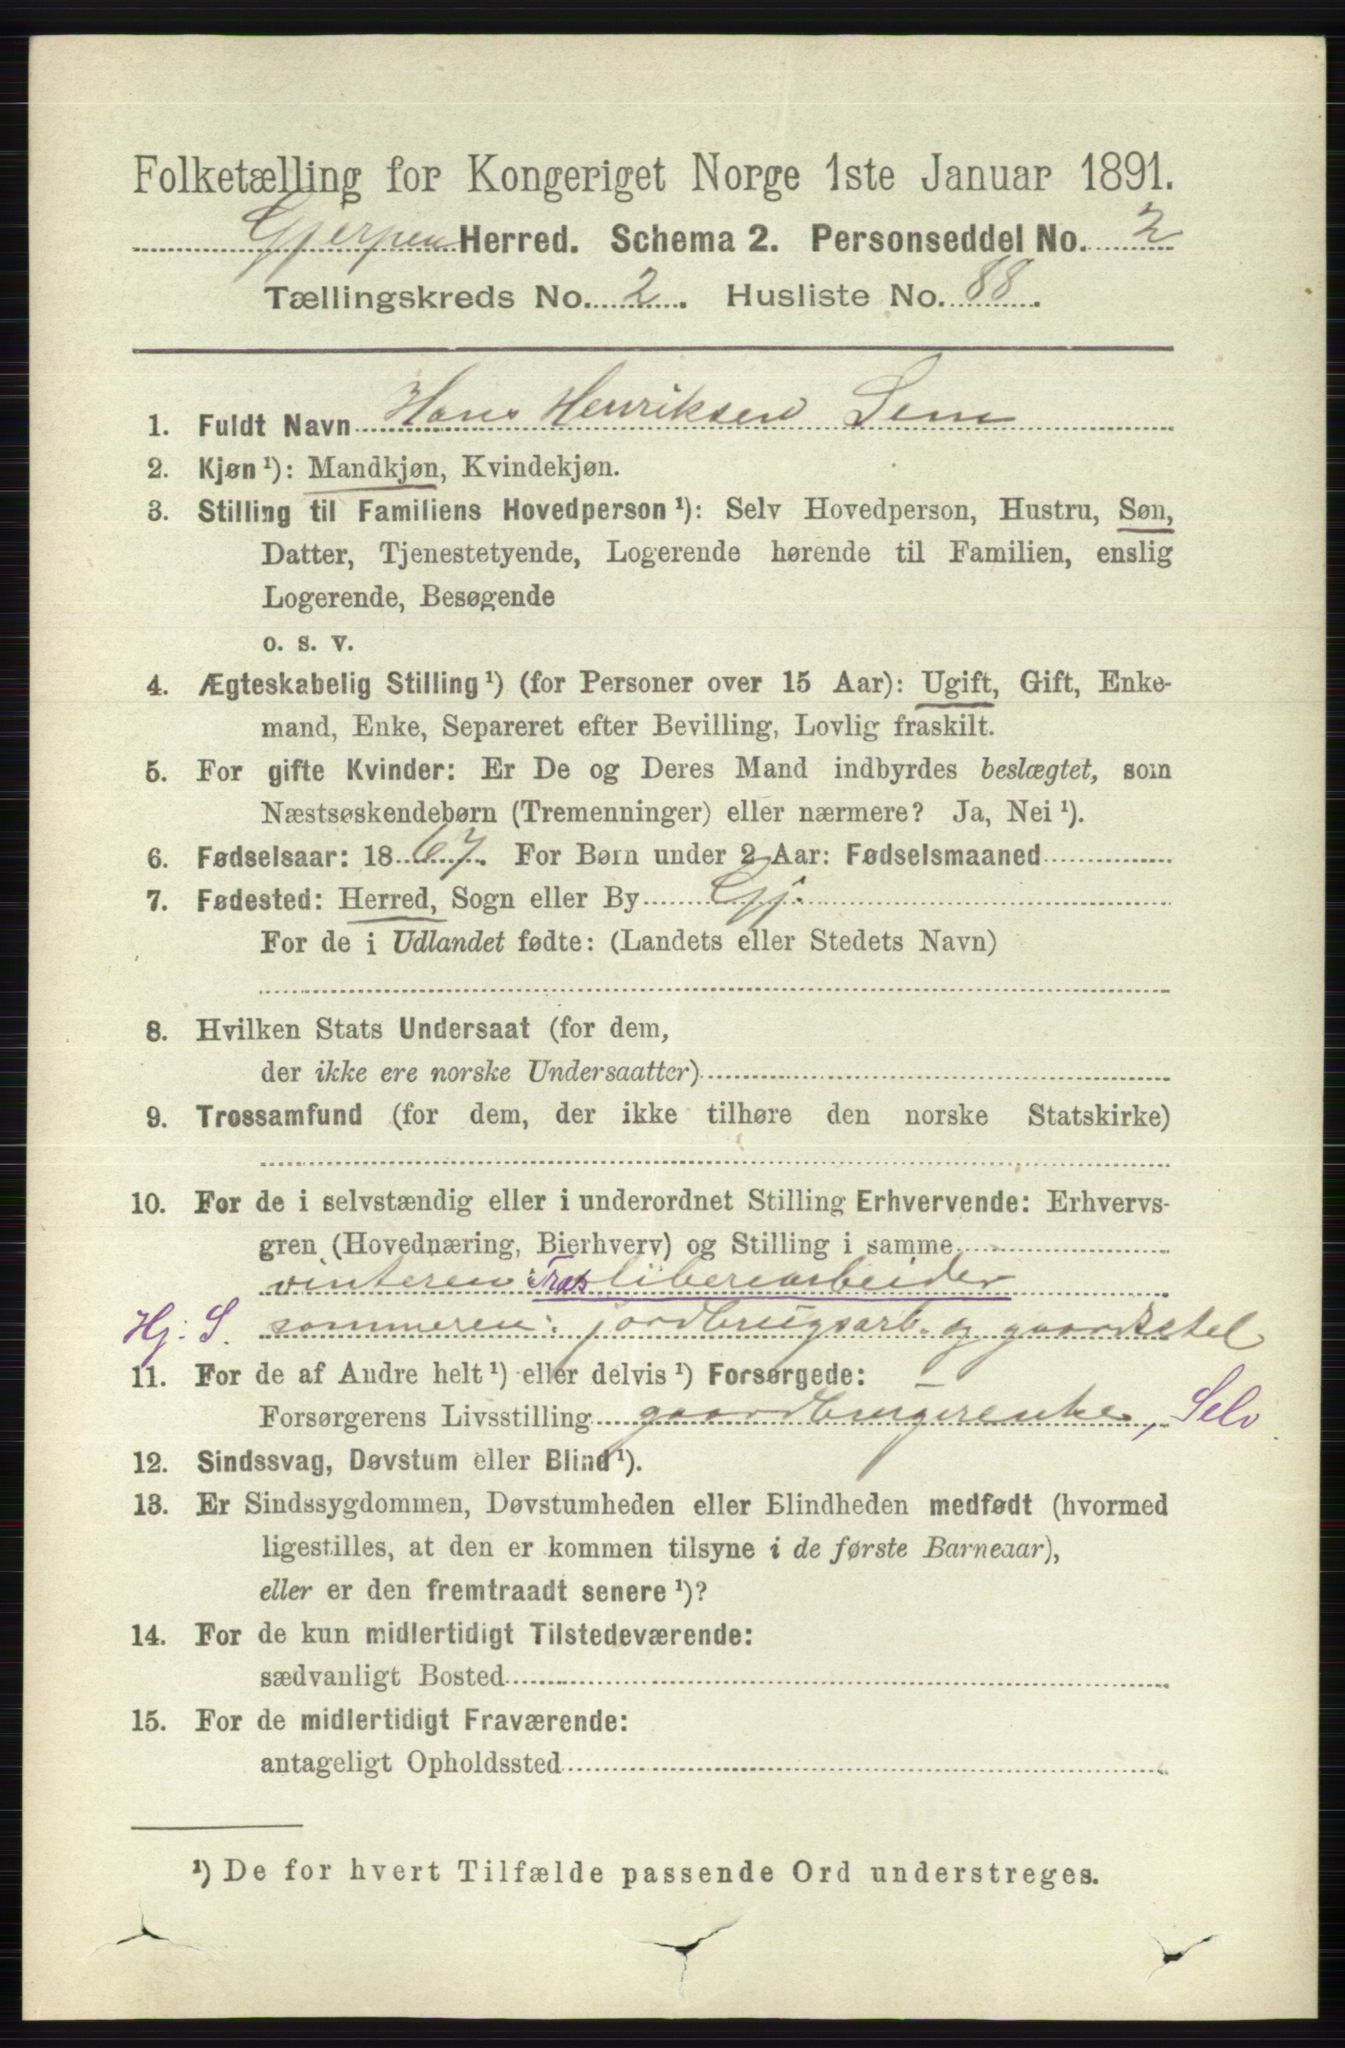 Folketælling for Kongeriget Norge 1ste Januar 1891.
Gjerpen Herred. Schema 2. Personseddel No. 2
Tællingskreds No. 2. Husliste No. 88.
1. Fuldt Navn Hans Henriksen Sem
2. Kjøn¹): Mandkjøn, Kvindekjøn.
3. Stilling til Familiens Hovedperson¹): Selv Hovedperson, Hustru, Søn,
Datter, Tjenestetyende, Logerende hørende til Familien, enslig
Logerende, Besøgende
o. s. v.
4. Ægteskabelig Stilling¹) (for Personer over 15 Aar): Ugift, Gift, Enke-
mand, Enke, Separeret efter Bevilling, Lovlig fraskilt.
5. For gifte Kvinder: Er De og Deres Mand indbyrdes beslægtet, som
Næstsøskendebørn (Tremenninger) eller nærmere? Ja, Nei¹).
6. Fødselsaar: 1867. For Børn under 2 Aar: Fødselsmaaned
7. Fødested: Herred, Sogn eller By Gj.
For de i Udlandet fødte: (Landets eller Stedets Navn)
8. Hvilken Stats Undersaat (for dem,
der ikke ere norske Undersaatter)
9. Trossamfund (for dem, der ikke tilhøre den norske Statskirke)
10. For de i selvstændig eller i underordnet Stilling Erhvervende: Erhvervs-
gren (Hovednæring, Bierhverv) og Stilling i samme
vinteren: Træsliberiarbeider
Hj: S. sommeren: jordbrugsarb. og gaardsstel
11. For de af Andre helt¹) eller delvis¹) Forsørgede:
Forsørgerens Livsstilling gaardbrugerenke, Selv
12. Sindssvag, Døvstum eller Blind¹).
13. Er Sindssygdommen, Døvstumheden eller Blindheden medfødt (hvormed
ligestilles, at den er kommen tilsyne i de første Barneaar),
eller er den fremtraadt senere¹)?
14. For de kun midlertidigt Tilstedeværende:
sædvanligt Bosted
15. For de midlertidigt Fraværende:
antageligt Opholdssted
¹) De for hvert Tilfælde passende Ord understreges.